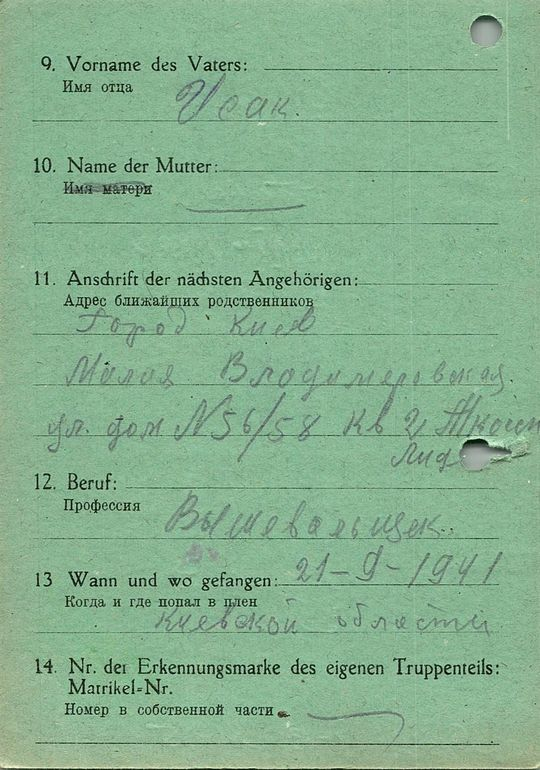 9. Vorname des Vaters:
Имя отца
Исак.
10. Name der Mutter:
Имя матери
11. Anschrift der nächsten Angehörigen:
Адрес ближайших родственников
Город Киев
Малая Владимеровская
ул. дом N 56/58 кв 2
12. Beruf:
Профессия
Вышевальщек
13 Wann und wo gefangen: 21-9-1941
Когда и где попал в плен
Киевской области
14. Nr. der Erkennungsmarke des eigenen Truppenteils:
Matrikel-Nr.
Номер в собственной части